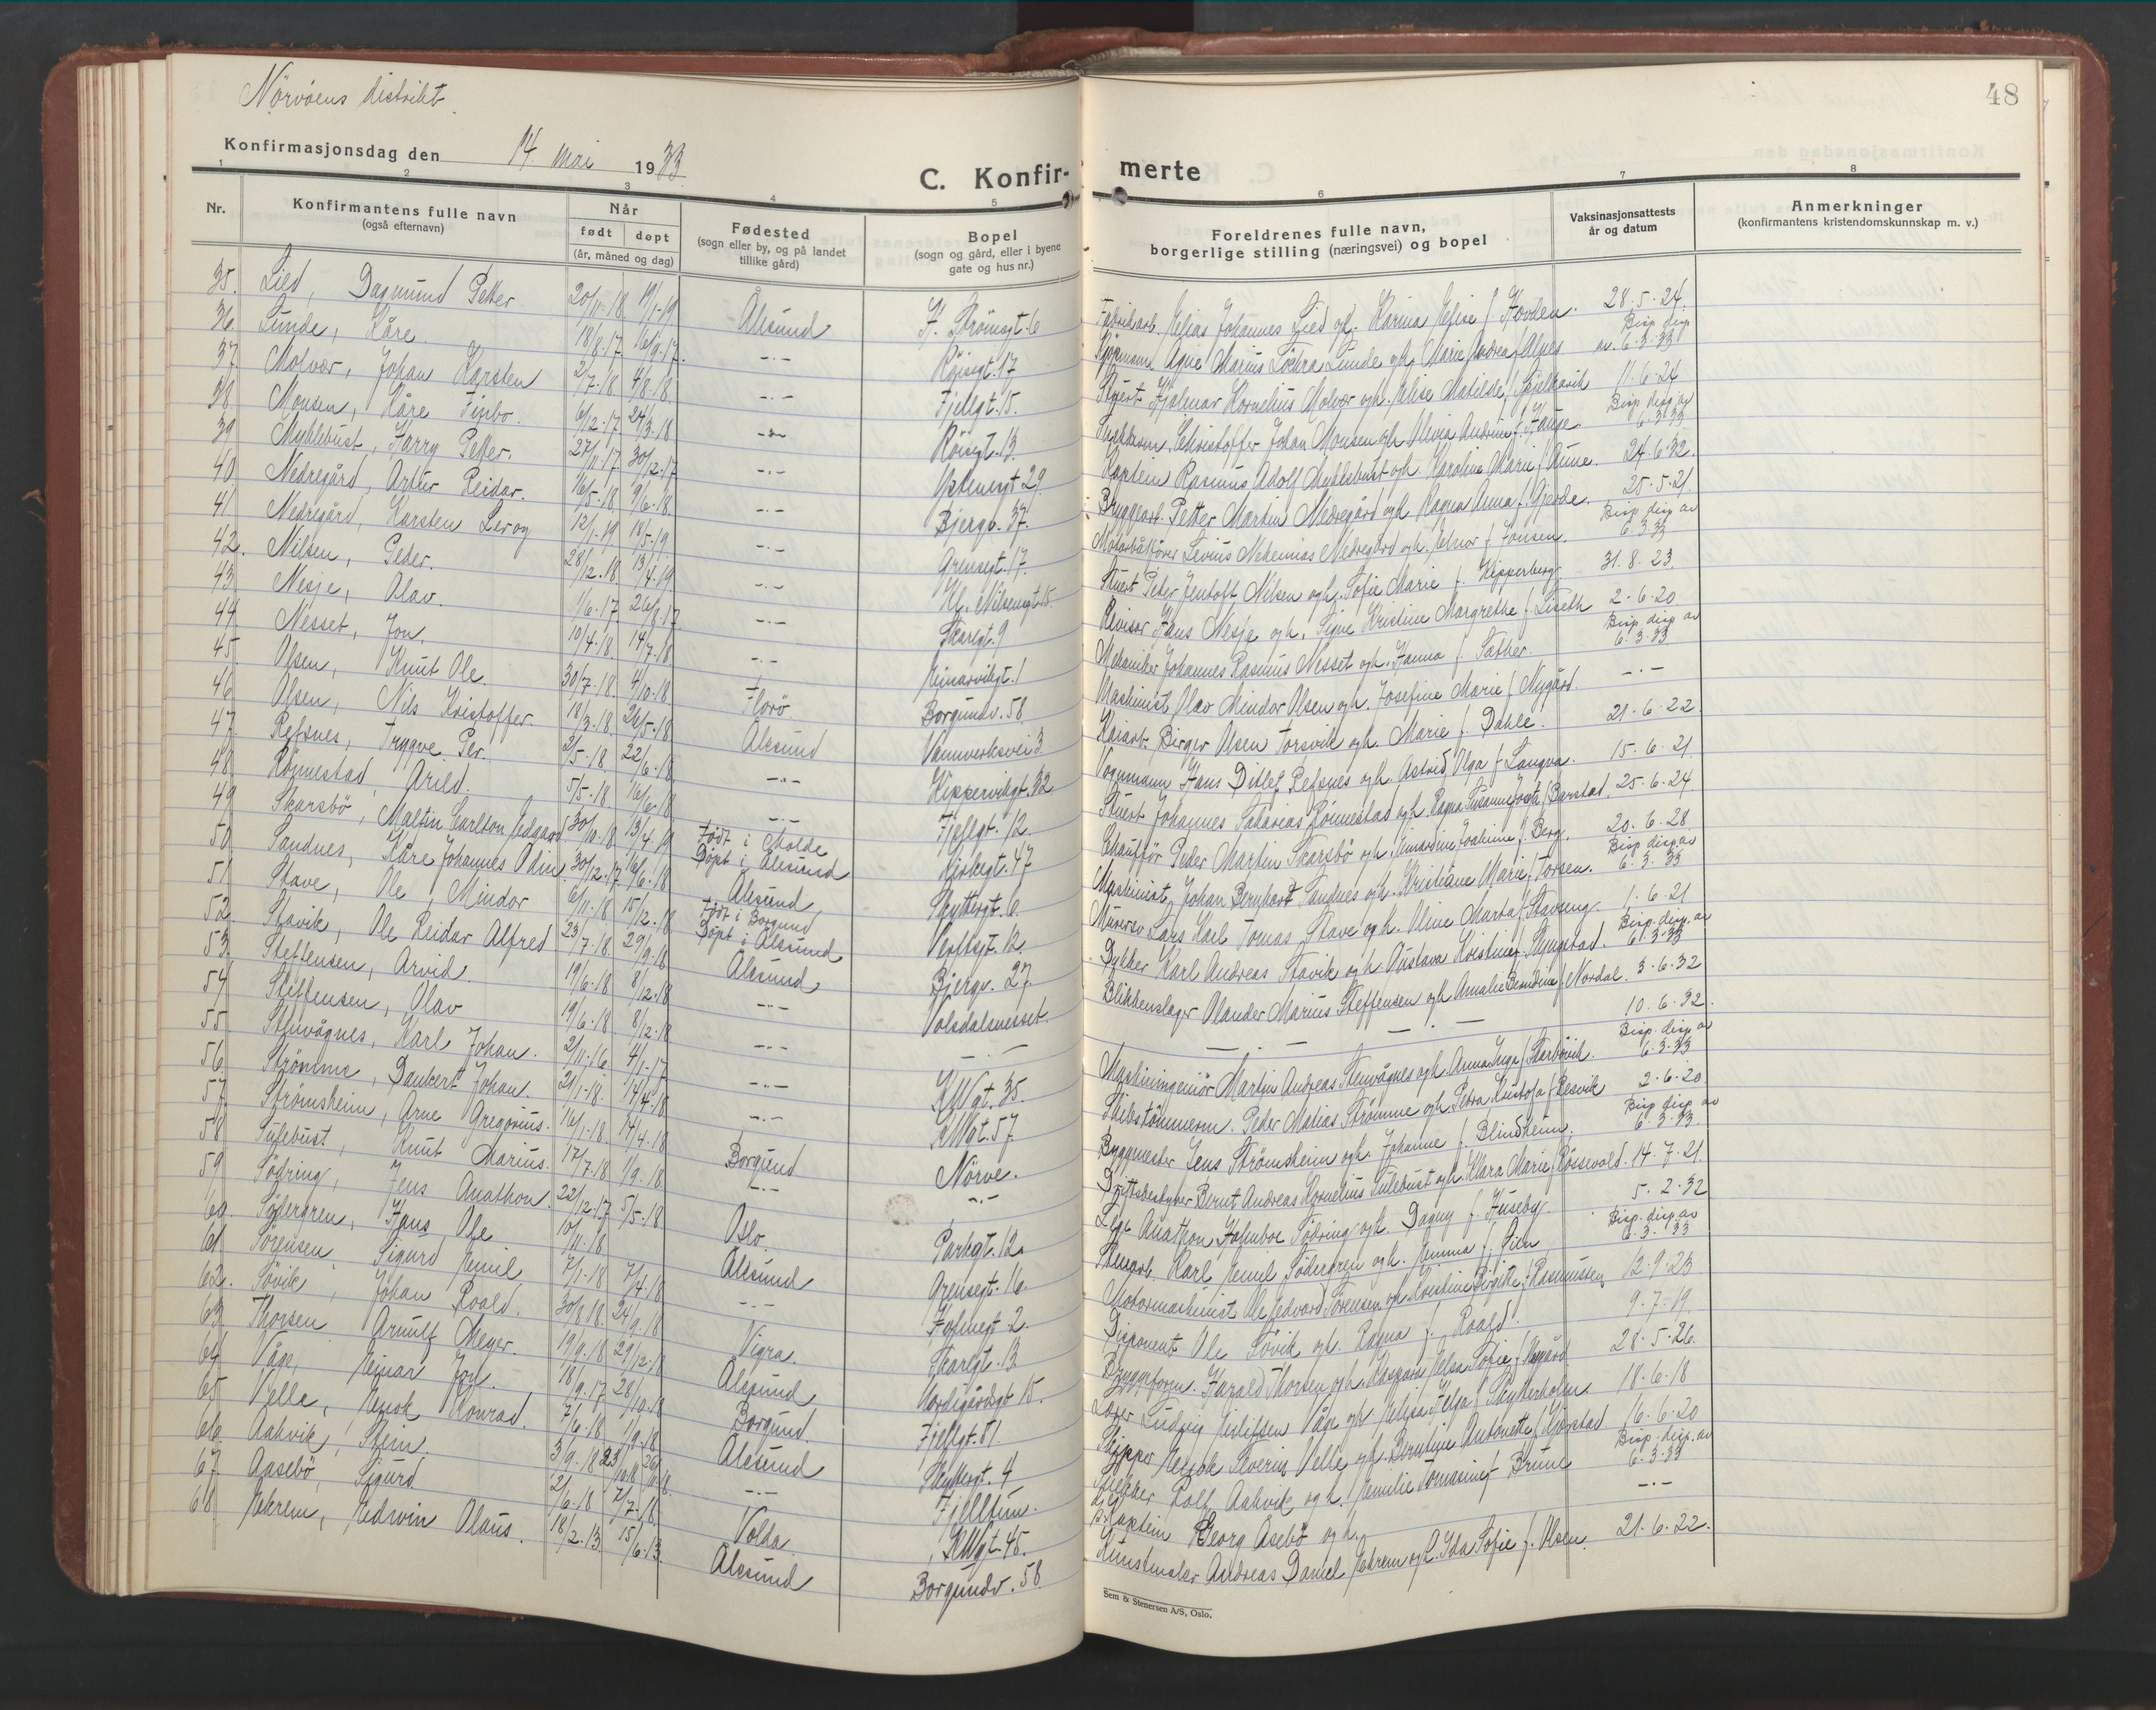 48
Nörvöens distrikt
Konfirmasjonsdag den 14. mai 1933
C. Konfir-merte
1 2 3 4 5 6 7 8
Nr. Konfirmantens fulle navn (også efternavn) Når født døpt (år, måned og dag) Fødested (sogn eller by, og på landet tillike gård) Bopel (sogn og gård, eller i byene gate og hus nr.) Foreldrenes fulle navn, borgerlige stilling (næringsvei) og bopel Vaksinasjonsattests år og datum Anmerkninger (konfirmantens kristendomskunnskap m. v.)
35. Lied, Dagmund Petter 20/11-18 19/1-19 Ålesund St. Strömsgt. 6 Fabrikarb. Elias Johannes Lied og h. Karina Elise f. Hovden. 28.5.24
36. Lunde, Kåre 18/8.17 16/9.17. -.- Röisgt. 17 Agne Marius Lunde og h. Marie Andrea f. Alnes Bisp. disp av. 6.3.33
37. Molvær, Johan Karsten 2/7.18 4/8.18. -.- Fjellgt. 15. Stuert Hjalmar Kornelius Molvær og h. Elise Matilde f. Spjelkavik 11.6.24
38 Monsen, Kåre Finbo. 6/12.17 24/3.18 -.- Röisgt. 13. Kristoffer Johan Monsen og h. Olivia Andrine f. Hauge. Bisp. disp av 6.3.33
39 Myklebust, Harry Petter. 27/11.17 30/12.17 -.- 29. Kaptein Rasmus Adolf Myklebust og h. Karoline Marie f. Aune. 24.6.32.
40 Nedregård, Artur Reidar. 16/5.18 9/6.18 -.- Bjergv. 37. Bryggearb. Petter Martin Nedregård og h. Ragna Anna f. Gjerde. 25.5.21
41 Nedregård, Karsten Leroy 12/1.19 18/5.19 -.- Grensegt. 17. Motorbåtförer Levius Nehemias Nedregård og h. Elnor f. Jonsen. Bisp. disp av 6.3.33
42. Nilsen, Peder. 28/12.18. 13/4.19 -.- Kl. Nilsensgt. 15. Stuert Peter Jentoft Nilsen og h. Sofie Marie f. Kipperberg 31.8.23
43 Nesje, Olav. 1/6.17 26/8.17 -.- Skaregt. 9 Revisor Hans Nesje og h. Signe Kristine Margrethe f. Liseth 2.6.20
44 Nesset, Jon. 10/4.18. 14/7.18 -.- Einarvikgt. 1 Mekaniker Johannes Rasmus Nesset og h. Hanna f. Sæther. Bisp. disp av 6.3.33
45. Olsen, Knut Ole. 30/7.18. 4/10.18 Florö Borgundv. 58. Maskinist Olav Mindor Olsen og h. Josefine Marie f. Nygård. -.-
46 Olsen, Nils Kristoffer. 18/3.18 26/5.18 Ålesund Vannverksvei 3 Kaiarb. Birger Olsen Torsvik og h. Marie f. Dahle. 21.6.22
47. Refsnes, Tryggve Per. 3/5.18 22/6.18 -.- Kippervikgt. 32 Vognmann Hans Ditlef Refsnes og h. Astrid Olga f. Langva. 15.6.21
48. Rönnestad, Arild. 5/5.18 16/6.18 -.- Fjellgt. 12 Stuert Johannes Sakarias Rönnestad og h. Ragna f. Barstad. 25.6.24
49 Skarsbö, Maltin Carlton Edgard 30/10.18 13/4.19 Født i Molde Döpt i Ålesund Kirkegt. 47 Chauffør Peder Martin Skarsbö og h. f. Berg. 20.6.28
50 Sandnes, Kåre Johannes Odin 30/12.17 16/6.18 Ålesund Skyttergt. 6. Maskinist Johan Bernhart Sandnes og h. Kristiane Marie f. Torsen. Bisp. disp av 6.3.33
51 Stave, Ole Mindor 6/11.18 15/12.18 Född i Borgund Döpt i Ålesund 12. Murersv. Lars Karl Tomas Stave og h. Oline Marta f. Stavseng. 1.6.21
52. Stavik, Ole Reidar Alfred 23/7.18 29/9.18 Ålesund Bjergv. 27 Dykker Karl Andreas Stavik og h. Gustava Kristine f. Bisp. disp. av 6.3.33
53. Steffensen, Arvid. 19/6.18 8/12.18 -.- Volsdalsnesset. Blikkenslager Olander Marius Steffensen og h. Amalie Berndine f. Nordal. 3.6.32
54 Steffensen, Olav 19/6.18 8/12.18 -.- -.- -.- 10.6.32.
55 Stenvågnes, Karl Johan. 2/11.16 4/1.17 -.- KWgt. 35. Maskiningeniör Martin Andreas Stenvågnes og h. Anna Inga f. Skarbövik. Bisp. disp av 6.3.33
56. Strömme, Dankert Johan. 21/1.18. 14/4.18 -.- KWgt. 57 Skibstömmerm. Peder Matias Strömme og h. Petra f. Resvik 2.6.20
57. Strömsheim, Arne Gregorius. 16/1.18. 14/4.18 Borgund Nörve. Byggmester Jens Strömsheim og h. Johanne f. Blindheim. Bisp. disp av 6.3.33.
58 Sulebust, Knut Marius. 17/7.18 1/9.18 -.- -.- Driftsbestyrer Bernt Andreas Kornelius Sulebust og h. Klara Marie f. Rossevold. 14.7.21
59 Södring, Jens Anathon 22/12.17 5/5.18 Oslo. Parkgt. 12. Lege Anathon Holmboe Södring og h. Dagny f. Huseby. 5.2.32
60. Södergren, Hans Ole 10/11.18. Ålesund Grensegt. 16. Karl Emil Södergren og h. Emma f. Bisp. disp av 6.3.33
61. Sörensen, Sigurd Emil 7/1.18 7/4.18 -.- Hofmegt. 2. Motormaskinist Ole Edvard Sörensen og h. Kristine Birgitte f. Rasmussen 12.9.23
62. Sövik, Johan Roald. 30/8.18. 24/9.18 Vigra. Skaregt. 13 Disponent Ole Sövik og h. Ragna f. Roald. 9.7.19.
63 Thorsen, Arnulf Meyer. 19/9.18 29/12.18 Ålesund 15. Bryggeform. Harald Thorsen og h. Elsa Sofie f. 28.5.26.
64 Våge, Einar Jon. 18/9.17 28/10.18 Borgund Fjellgt. 51. Loser Ludvig Våge og h. Elisa Helga f. Skytterholm. 18.6.18
65 Velle, Henrik Konrad. 7/6.18 1/9.18 Ålesund Skyttergt. 4 Skipper Severin Velle og h. Berntine Antonette f. 16.6.20
66. Aahvik, Stein. 3/9.18 -.- Fjelltun. Rolf Aahvik og h. Emilie Tomasine f. Brune Bisp. disp. av 6.3.33
67 Aasebö, Sigurd 2/6.18 7/7.18. Volda KWgt. 45. Kaptein Georg Asebö og h. -.-
68 Ekrem, Edwin Olaus. 18/2.13 15/6.13 Ålesund Borgundv. 58 Kunstmaler Andreas Daniel Ekrem og h. Ida Sofie f. Olsen. 21.6.22.
Sem & Stenersen A/S, Oslo.